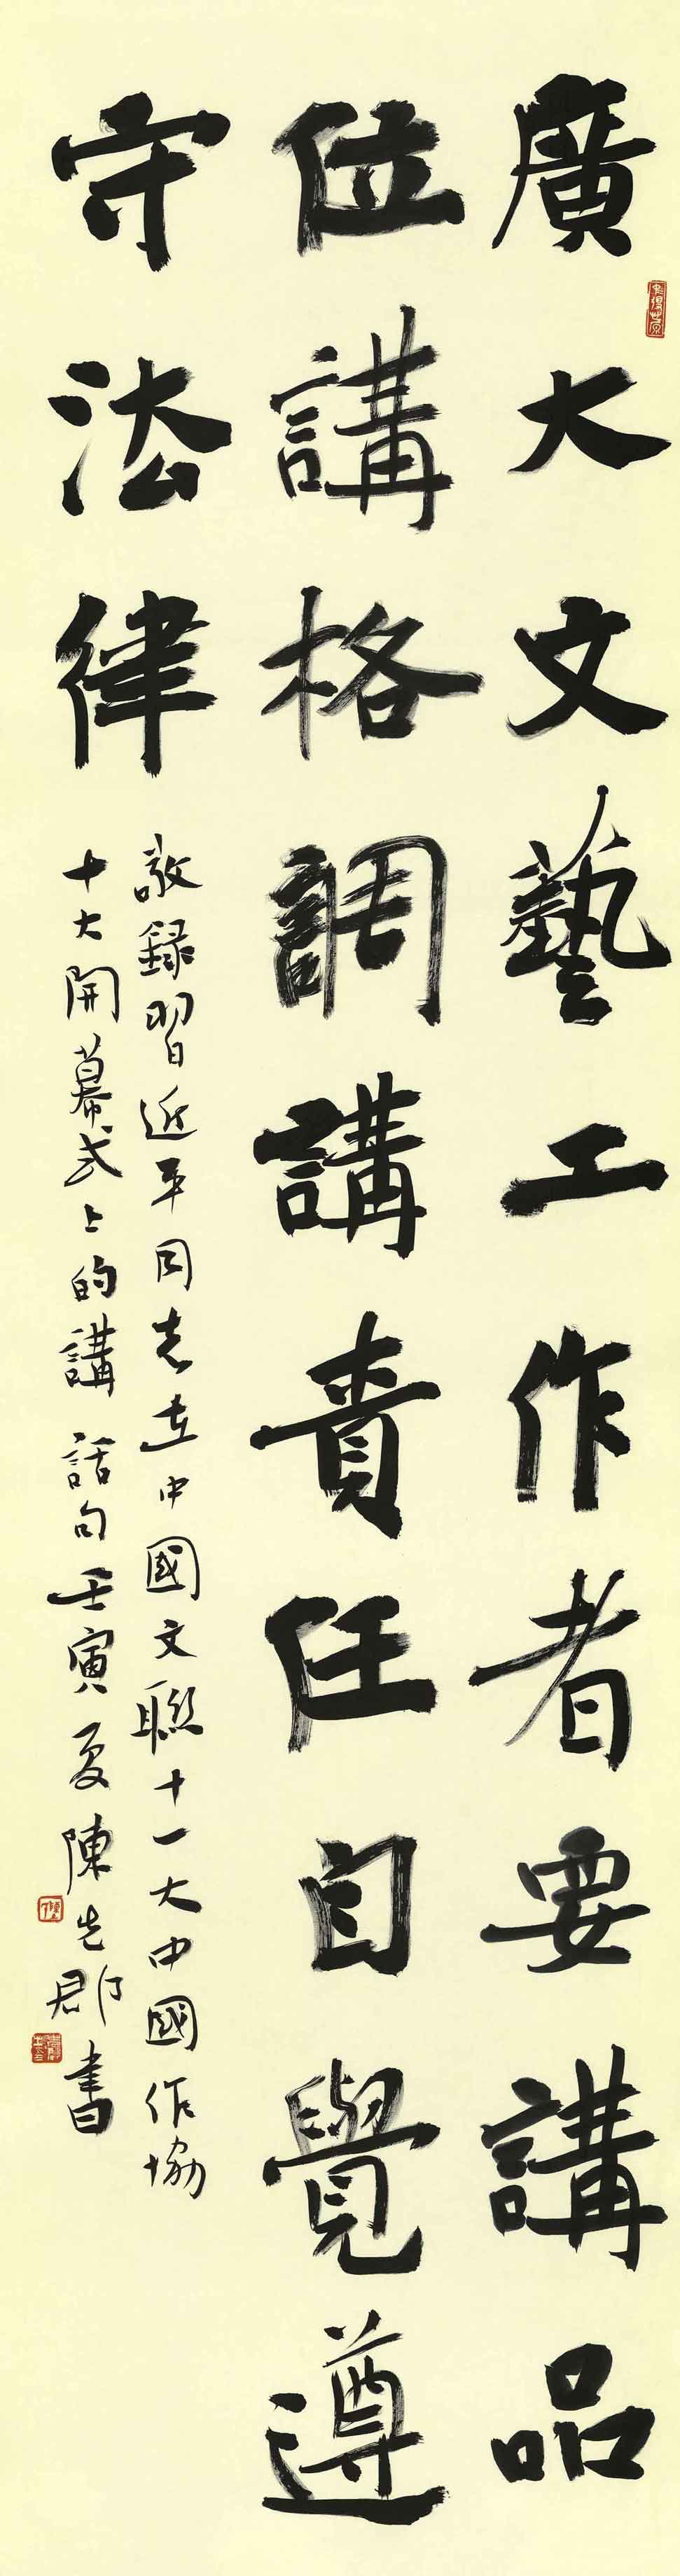 廣大文藝工作者要講品
位講格調講責任自覺遵
守法律
敬録習近平同志在中國文聯十一大中國作協
十大開幕式上的講話句壬寅夏陳先郡書